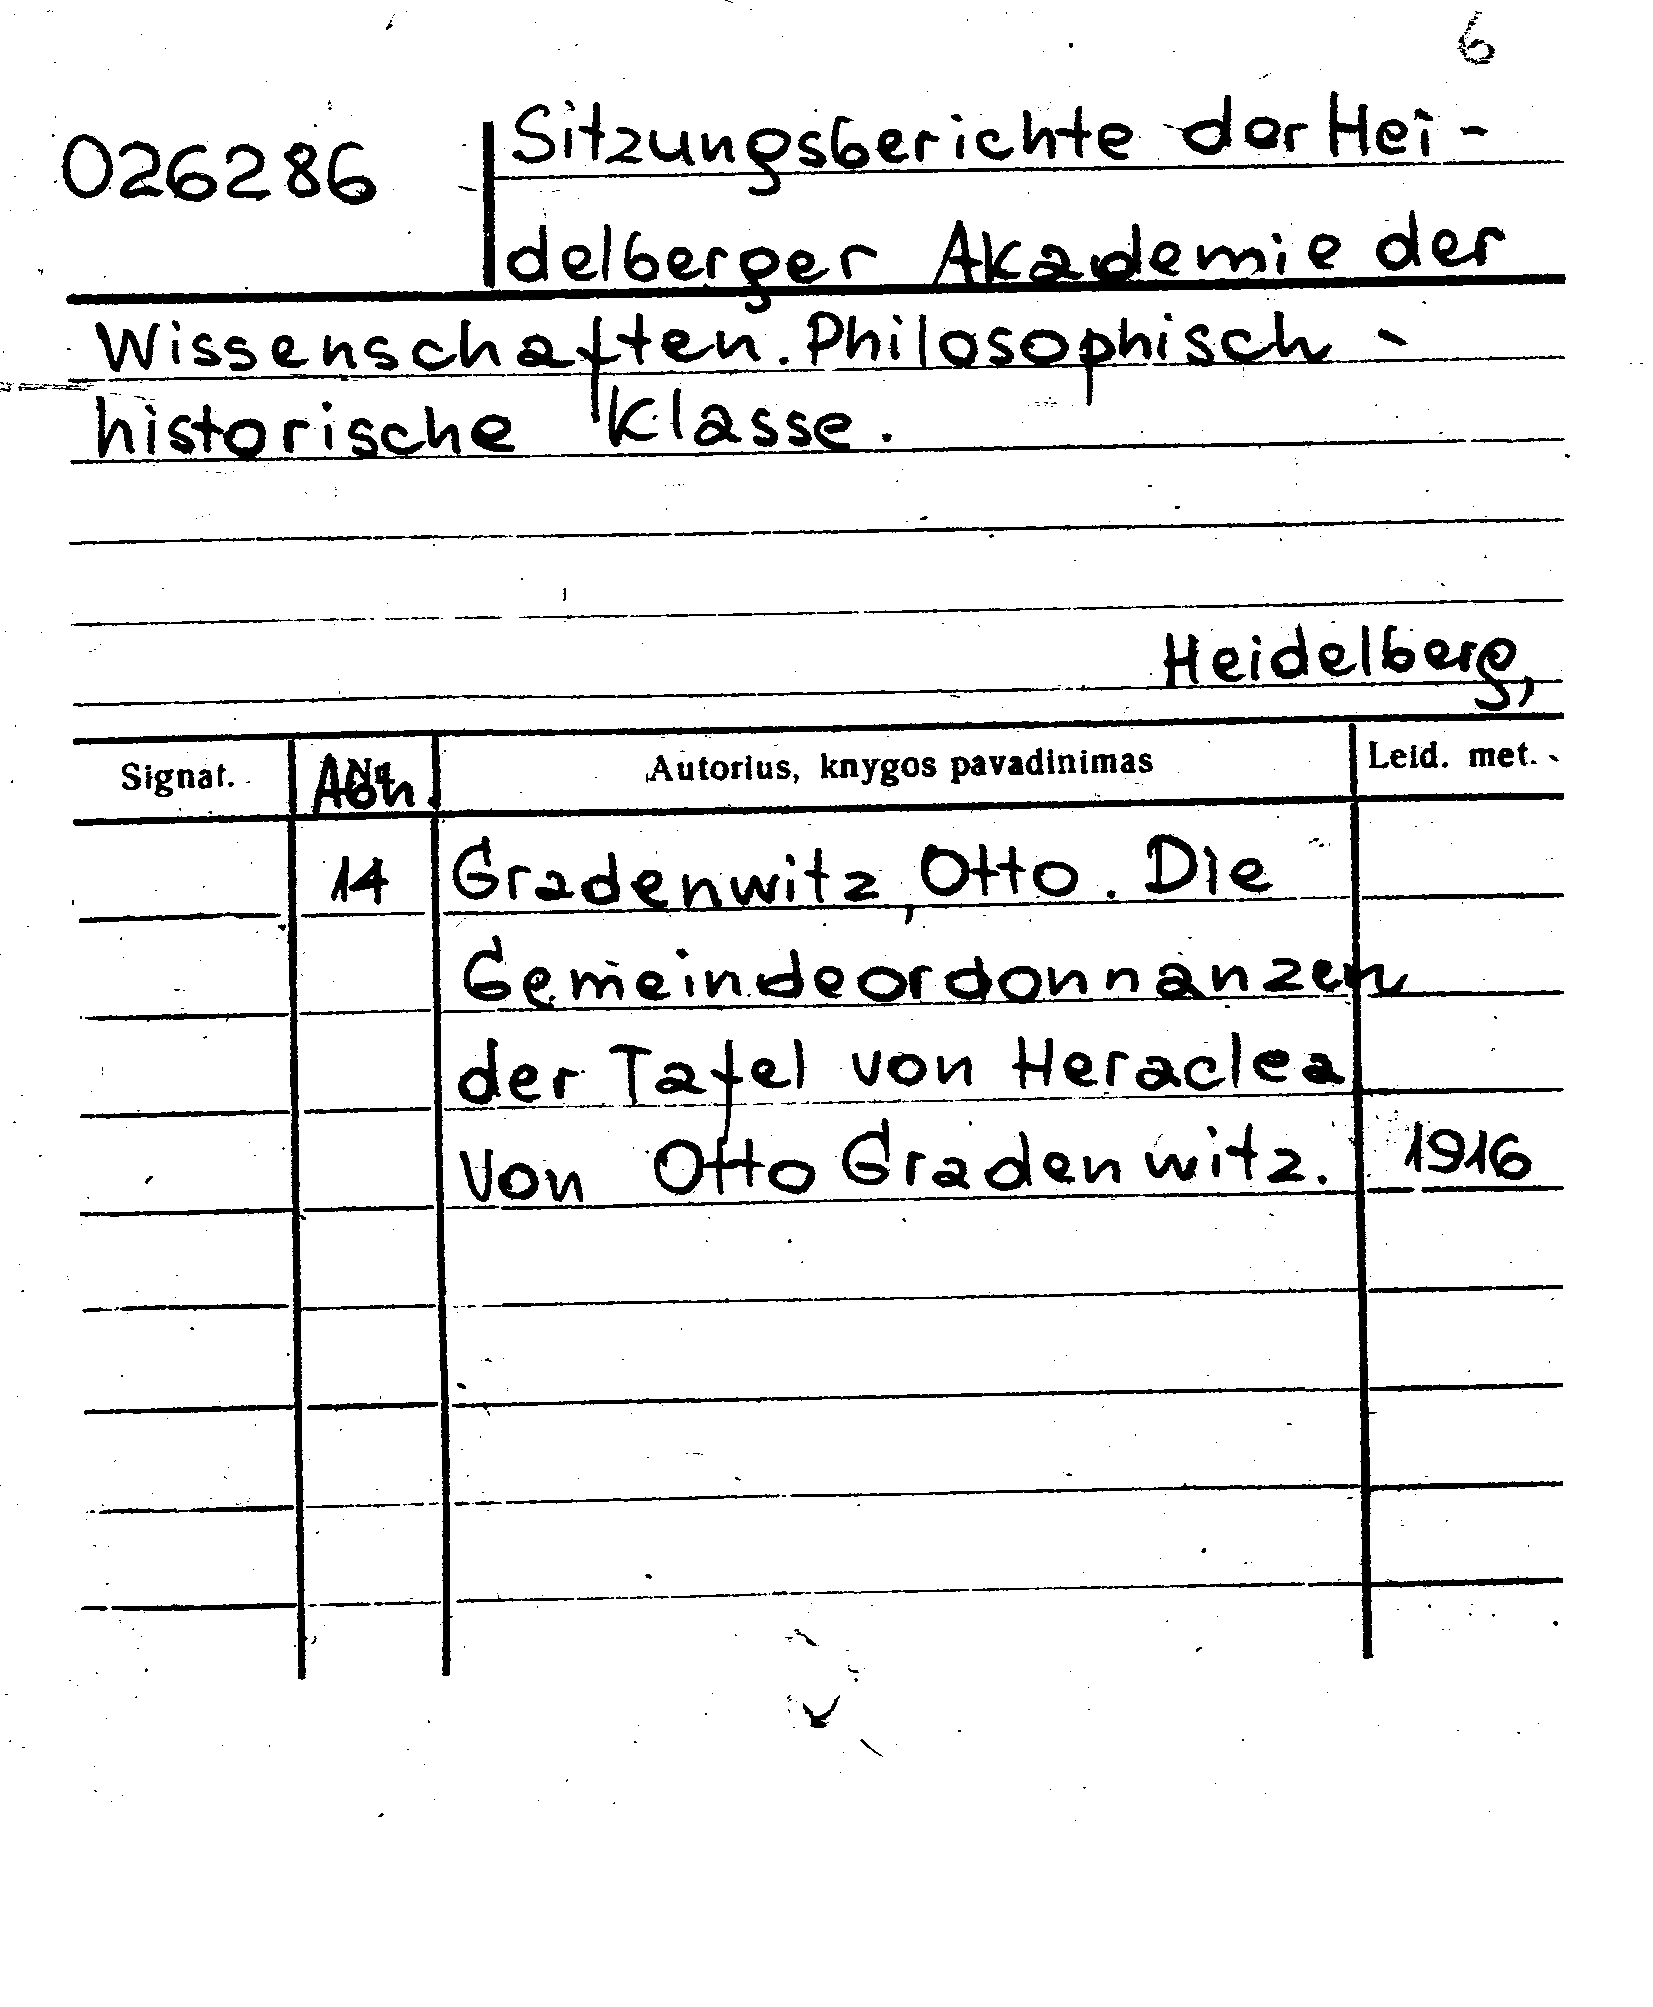 6
026286 Sitzungsberichte der Hei-
delberger Akademie der
Wissenschaften. Philosophisch-
historische Klasse.
Heidelberg,
Signat. Abh. Autorius, knygos pavadinimas Leid. met.
14 Gradenwitz, Otto. Die
Gemeindeordonnanzen
der Tafel von Heraclea
von Otto Gradenwitz. 1916